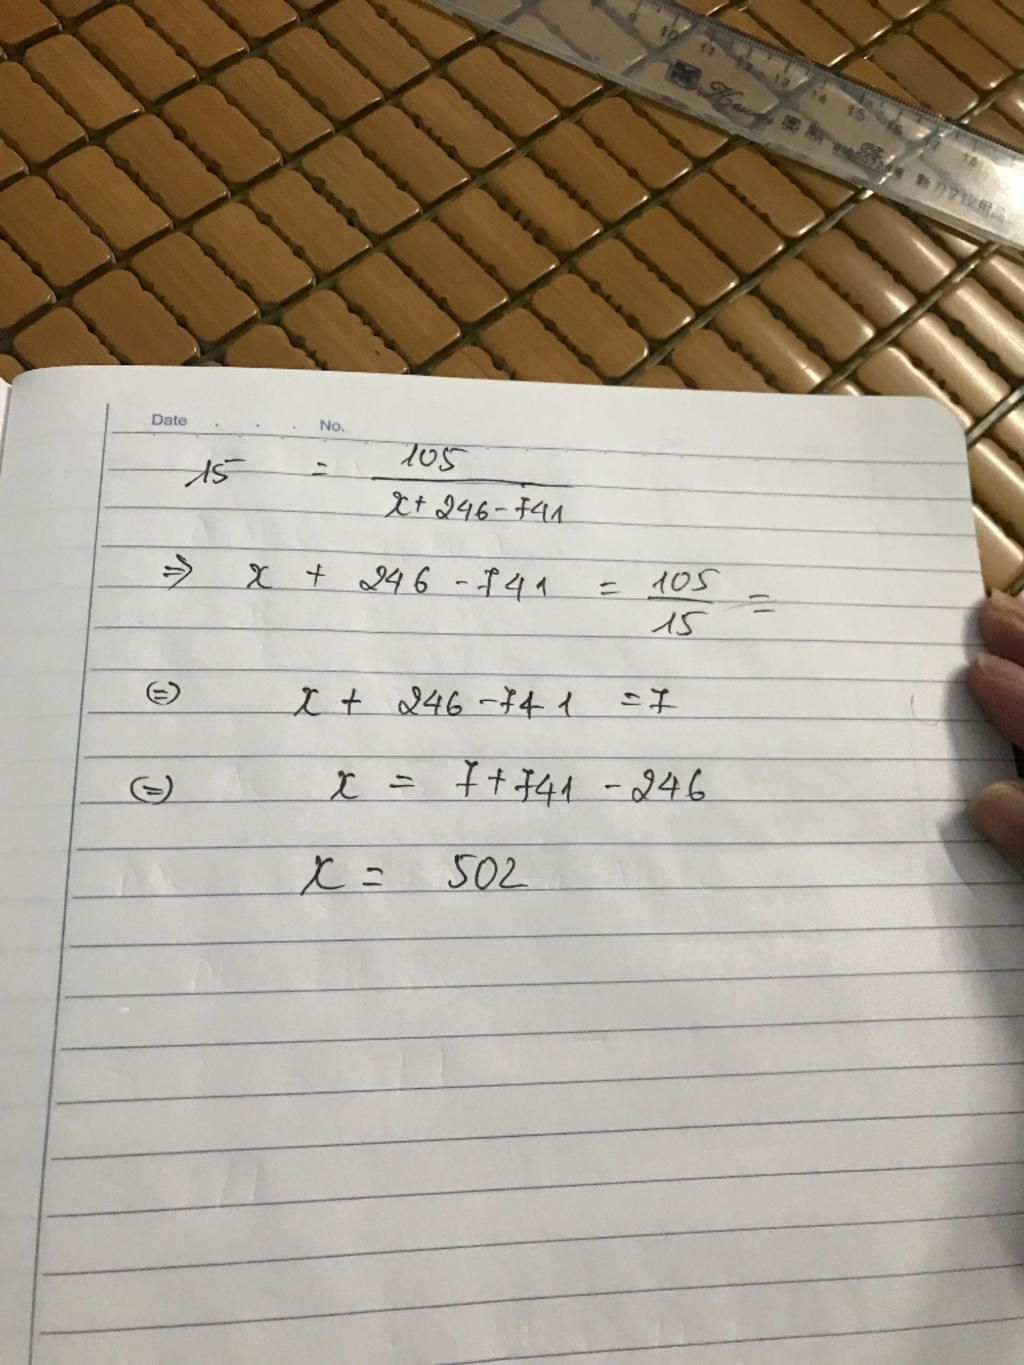 10 11 12 13 14 15 16 17 18
Date . . . No.
15 = 105 / x + 246 - 741
⇒ x + 246 - 741 = 105 / 15 =
(=) x + 246 - 741 = 7
(=) x = 7 + 741 - 246
x = 502